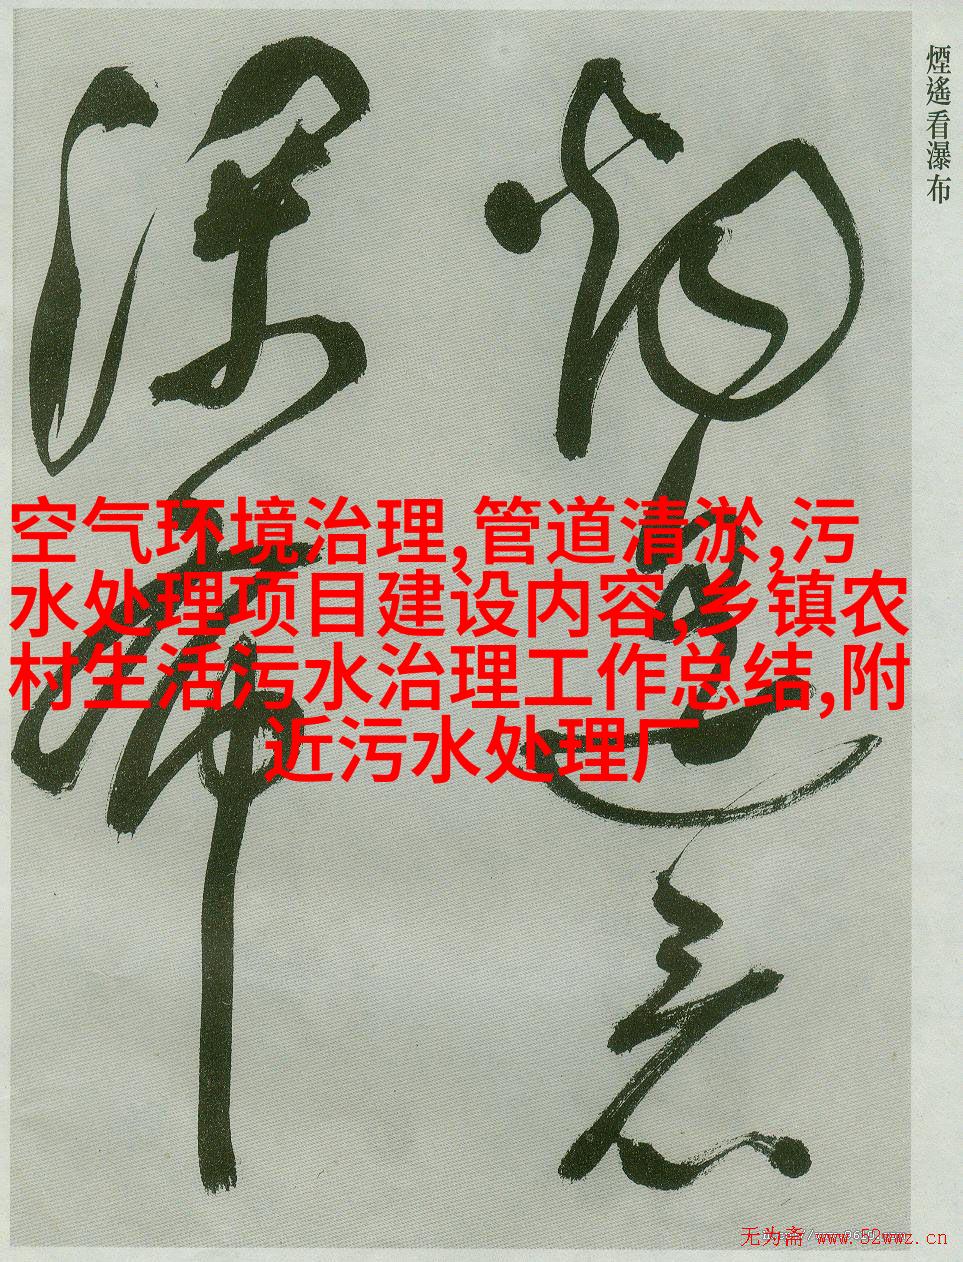 煙遙看瀑布
空气环境治理,管道清淤,污
水处理项目建设内容,乡镇农
村生活污水治理工作总结,附
近污水处理厂
无为斋 www.52wwz.cn